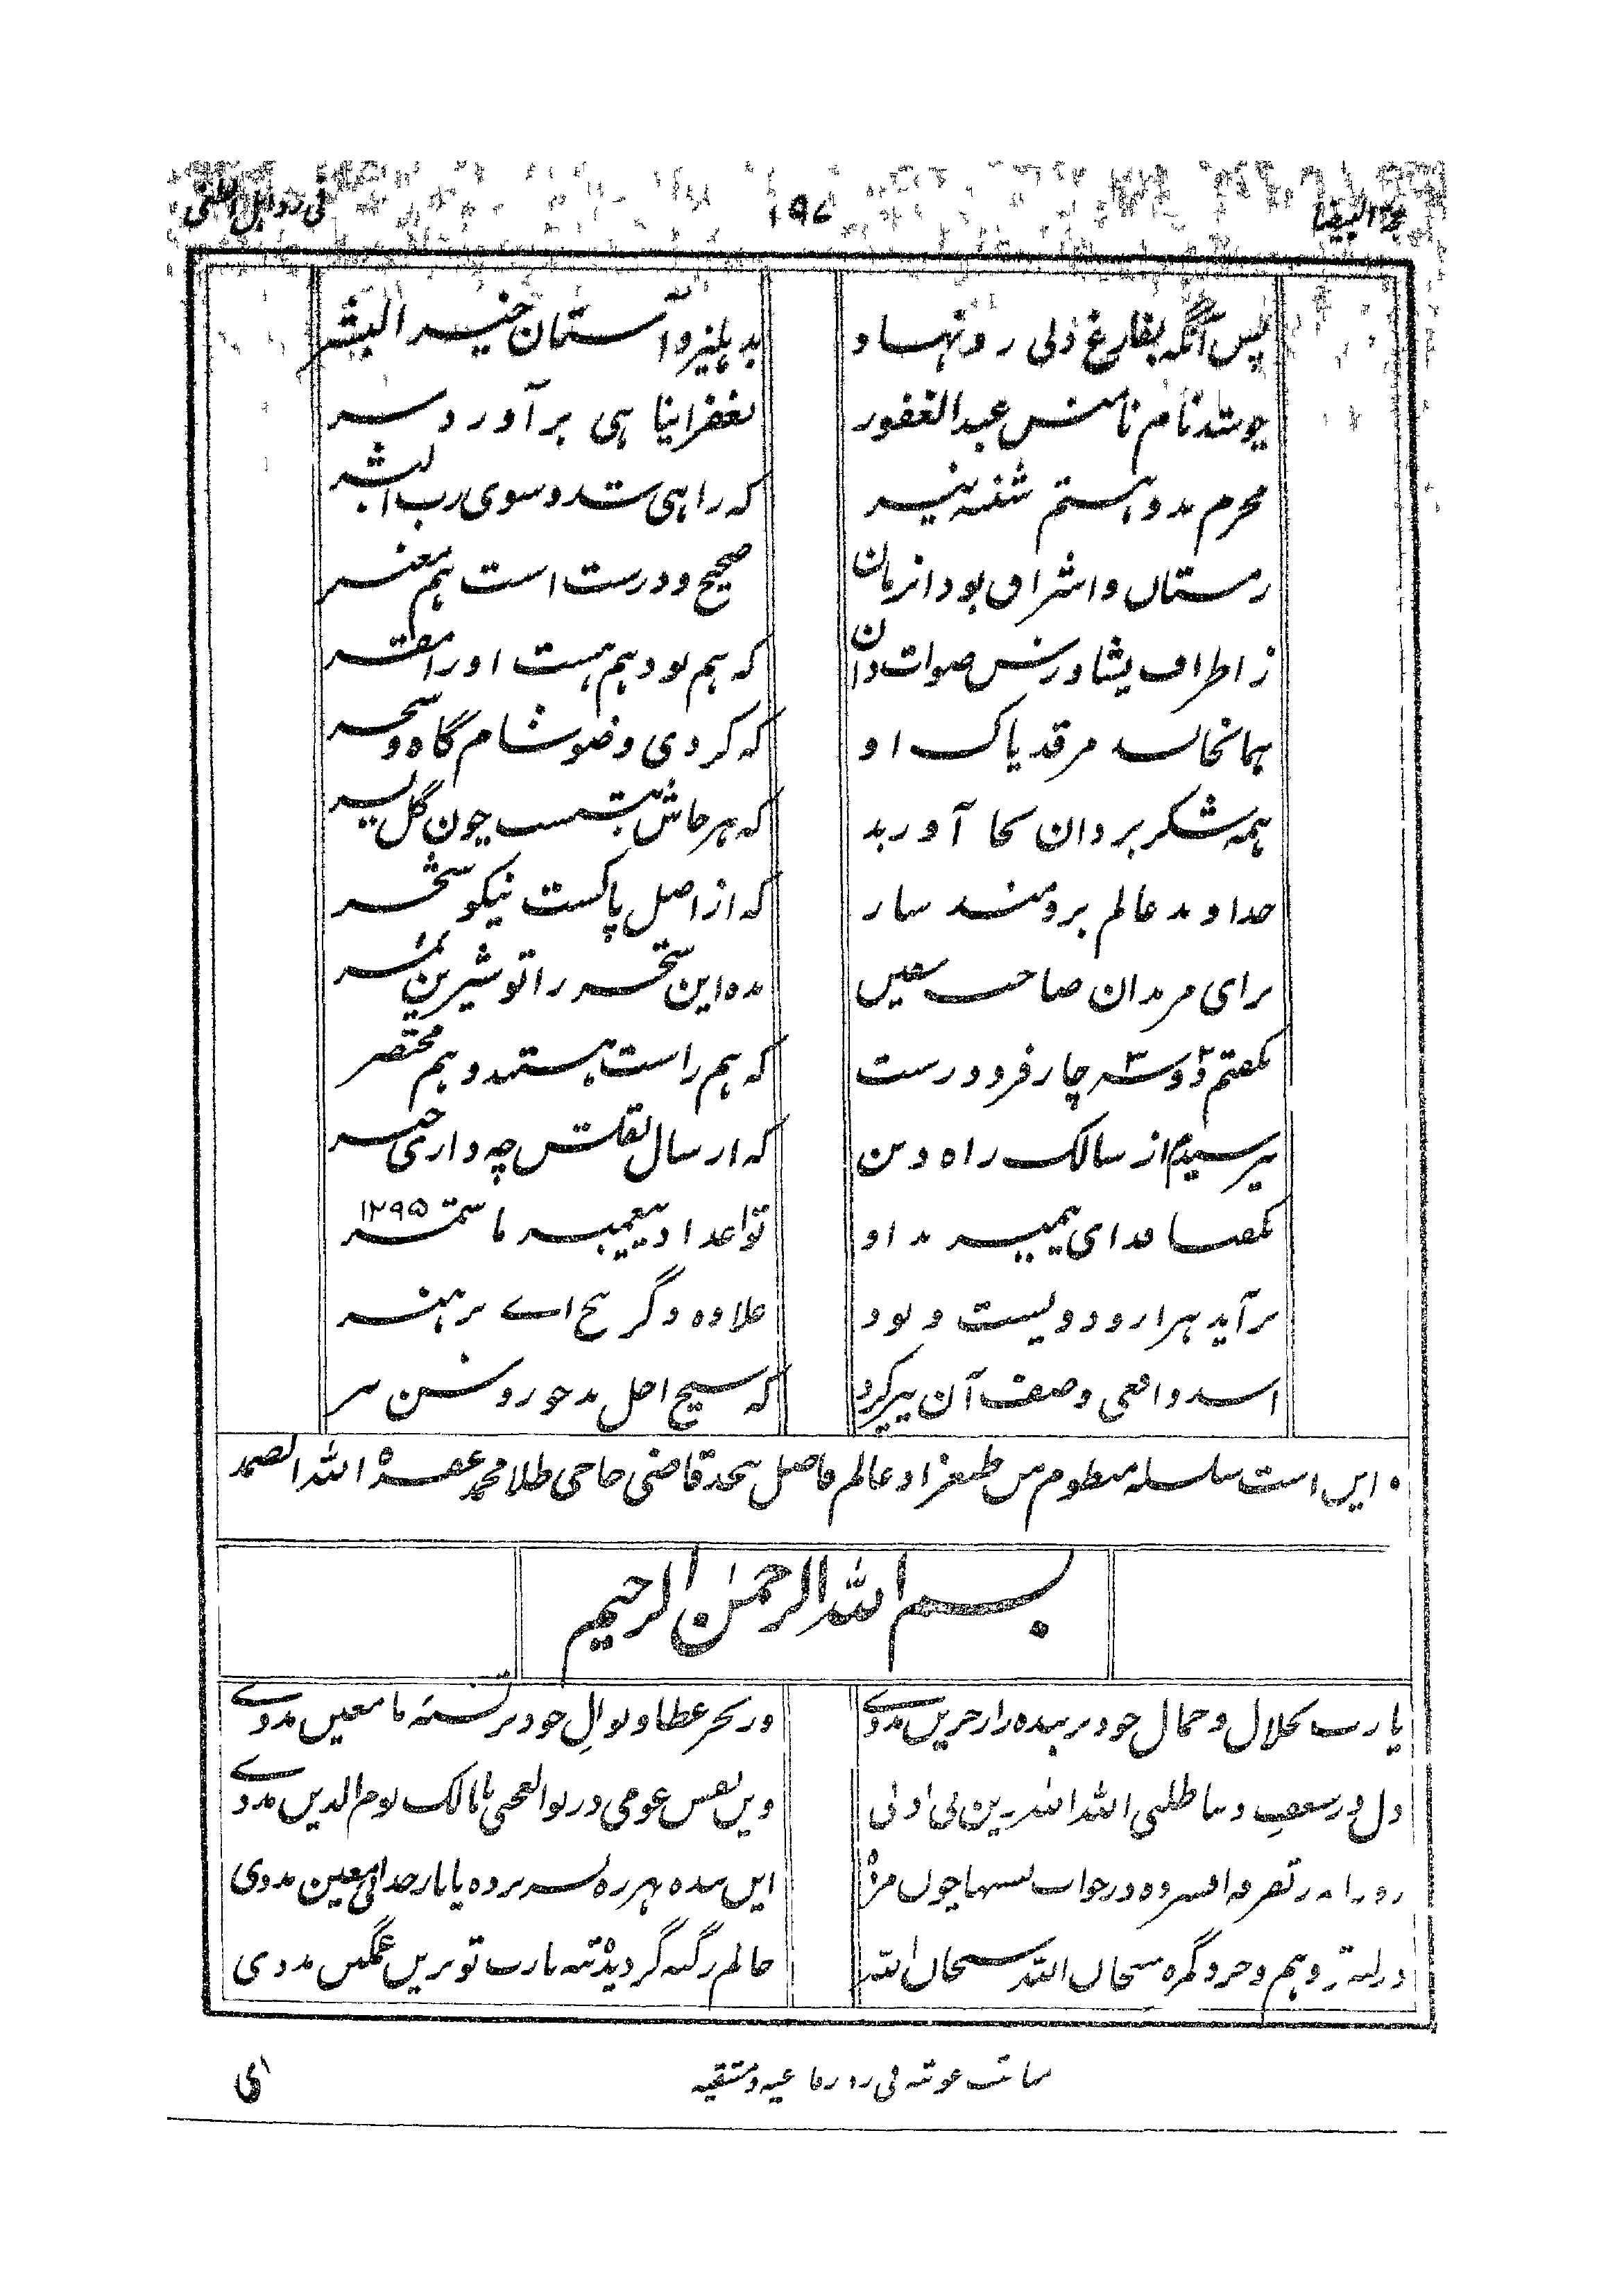 ۱۹۷
پس آنگه بفارغ دلی رو نهاد بدهلیز و آستان خیر البشر
چو شد نام نامیش عبدالغفور بغفرانپناهی برآورد سر
محرم بد و بستم شنبه نیز که راهی شد و سوی رب البشر
زمستان و اشراق بود آنزمان صحیح و درست است هم معتبر
ز اطراف پشاورش صوات دان که هم بود هم هست او را مقر
همانجاست مرقد پاک او که کردی وضو شام گاه و سحر
همه شکر یزدان بجا آورید که هر جاش بنشست چون گل پسر
خداوند عالم برومند سار که از اصل پاکست نیکو شجر
برای مریدان صاحب یقین بده این شجر را تو شیرین ثمر
بگفتم دو سه چار فرد درست که هم راست هستند و هم مختصر
بپرسیدم از سالک راه دین که از سال نقلش چه داری خبر
بگفتا فدای پیمبر بد او تو اعداد پیغمبر ما شمر ۱۲۹۵
برآید هزار و دویست و نود علاوه دگر پنج اے پر هنر
اسد واقعی وصف آن پیر کرد که شیخ اجل بد چو روشن
این است سلسله منظوم من طبعزاد عالم فاضل قاضی حاجی طلا محمد الله الصمد
بسم الله الرحمن الرحیم
یا رب بجلال و جمال خود بر بنده زار حزین مددے وز بحر عطا و نوال خود بر تشنه ما معین مددے
دل در دنیا طلبی الله الله زین بی ادبی وین نفس عدوی در بوالعجبی یا مالک یوم الدین مددے
افسرده در خواب چون مرده این بنده بهره نبرده یا بار خدای معین مددی
وهم و خرد گمره سبحان الله سبحان الله حالم گردیده تبه یا رب تو برین غمگین مددی